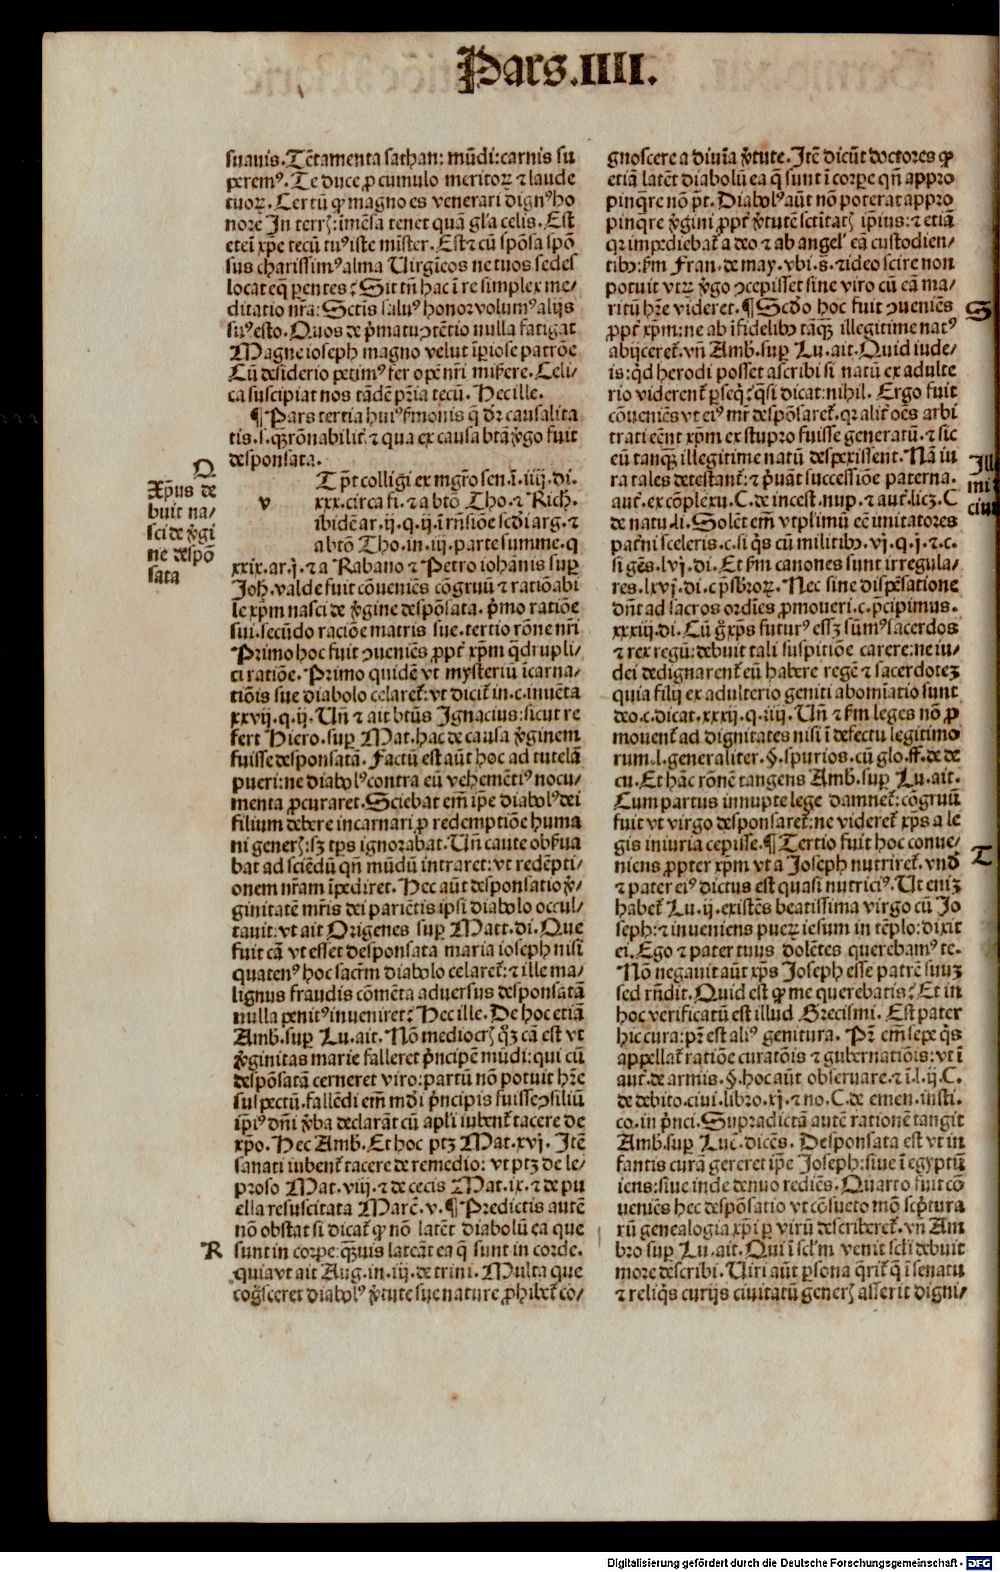 Pars.IIII.
suauis. Tẽtamenta sathan: mũdi: carnis su
peremꝰ. Te duce ꝓ cumulo meritoꝝ ⁊ laude
tuoꝝ. Certũ ꝙ magno es venerari dignꝰ ho
nore In terrꝭ: imẽsa tenet quã gl'a celis. Est
eteĩ xp̃e tecũ tuꝰ iste mĩster. Est ⁊ cũ spõsa spõ
sus charissimꝰ alma Uirgĩeos ne tuos sedes
locat eq̃ ꝑentes: Sit tñ hac ĩ re simplex me/
ditatio nr̃a: Sctĩs salꝰ honor volumꝰ alijs
suꝰ esto. Quos de p̃matu ꝯtẽtio nulla fatigat
Magne ioseph magno velut ĩꝑiose patrõe
Cũ desiderio petimꝰ fer opẽ nr̃i misere. Celi/
ca suscipiat nos tãdẽ pr̃ia tecũ. Hec ille.
¶ Pars tertia huiꝰ s̃monis q̃ dr̃ causalita
tis. s. q̃ rõnabilit̃. ⁊ qua ex causa btã ṽgo fuit
desponsata.
Q
Xp̃us de
buit na/
sci de ṽgi
ne despõ
sata
v
Tp̃t colligi ex mgr̃o sen. ĩ. iiij. di.
xxx. circa fi. ⁊ a btõ Tho. ⁊ Rich.
ibidẽ ar. ij. q. ij. ĩ rñsiõe scd̃i arg. ⁊
a btõ Tho. in. iij. parte summe. q
xxix. ar. j. ⁊ a Rabano ⁊ Petro iohãnis suꝑ
Joh. valde fuit cõueniẽs cõgruũ ⁊ ratiõabi
le xp̃m nasci de ṽgine despõsata. p̃mo ratiõe
sui. secũdo raciõe matris sue. tertio rõne nr̃i
Primo hoc fuit ꝯueniẽs ꝓpt̃ xp̃m q̃drupli/
ci ratiõe. Primo quidẽ vt mysteriũ ĩcarna/
tiõis sue diabolo celaret̃: vt dicit̃ in. c. inuẽta
xxvij. q. ij. Uñ ⁊ ait btũs Ignacius: sicut re
fert Hiero. suꝑ Mat. hac de causa ṽginem
fuisse desponsatã. Factũ est aũt hoc ad tutelã
pueri: ne diabolꝰ contra eũ vehemẽtiꝰ nocu/
menta ꝓcuraret. Sciebat em̃ ip̃e diabolꝰ dei
filium debere incarnari ꝓ redemptiõe huma
ni generꝭ: sꝫ tp̃s ignorabat. Uñ caute obs̃ua
bat ad sciẽdũ qñ mũdũ intraret: vt redẽpti/
onem nr̃am ĩpediret. Hec aũt desponsatio ṽ/
ginitatẽ mr̃is dei pariẽtis ipsi diabolo occul/
tauit: vt ait Origenes suꝑ Matt. di. Que
fuit cã vt esset desponsata maria ioseph nisi
quatenꝰ hoc sacr̃m diabolo celaret̃: ⁊ ille ma/
lignus fraudis cõmẽta aduersus desponsatã
nulla penitꝰ inueniret: Hec ille. De hoc etiã
Amb. suꝑ Lu. ait. Nõ mediocrꝭ q̃ꝫ cã est vt
ṽginitas marie falleret p̃ncipẽ mũdi: qui cũ
despõsatã cerneret viro: partũ nõ potuit hr̃e
suspectũ. fallẽdi em̃ mũdi p̃ncipis fuisse ꝯsiliũ
ip̃iꝰ dñi ṽba declarãt cũ apl'i iubent̃ tacere de
xp̃o. Hec Amb. Et hoc ptꝫ Mat. xvj. Itẽ
sanati iubent̃ tacere de remedio: vt ptꝫ de le/
proso Mat. viij. ⁊ de cecis Mat. ix. ⁊ de pu
ella resuscitata Marc̃. v. ¶ Predictis autẽ
nõ obstat si dicat̃ ꝙ nõ latẽt diabolũ ea que
R
sunt in corꝑe: q̃ꝫuis lateãt ea q̃ sunt in corde.
quia vt ait Aug. in. iij. de trini. Multa que
cog̃sceret diabolꝰ ṽtute sue nature ꝓhibet̃ co/
gnoscere a diuĩa ṽtute. Itẽ dicũt doctores ꝙ
etiã latẽt diabolũ ea q̃ sunt ĩ corꝑe qñ appro
pinq̃re nõ p̃t. Diabolꝰ aũt nõ poterat appro
pinq̃re ṽgini ꝓpt̃ ṽtutẽ sctĩtatꝭ ip̃ius: ⁊ etiã
qꝛ impediebat̃ a deo ⁊ ab angel' eã custodien/
tibꝰ: s̃m Fran. de may. vbi. s̃. ⁊ ideo scire non
potuit vtꝝ ṽgo ꝯcepisset sine viro cũ eã ma/
ritũ hr̃e videret. ¶ Scd̃o hoc fuit ꝯueniẽs
S
ꝓpt̃ xp̃m: ne ab ĩfidelibꝰ tãq̃ꝫ illegitime natꝰ
abijceret̃. vñ Amb. suꝑ Lu. ait. Quid iude/
is: q̃d herodi posset ascribi si natũ ex adulte
rio viderent̃ ꝑseq̃: q̃si dicat: nihil. Ergo fuit
cõueniẽs vt eiꝰ mr̃ despõsaret̃. qꝛ alit̃ oẽs arbi
trati eẽnt xp̃m ex stupro fuisse generatũ. ⁊ sic
eũ tanq̃ꝫ illegitime natũ despexissent. Nã iu
ra tales detestant̃: ⁊ p̃uãt successiõe paterna.
aut̃. ex cõplexu. C. de incest. nup. ⁊ aut̃. licꝫ. C
de natu. li. Solẽt em̃ vt plimũ eẽ imitatores
pat̃ni sceleris. c. si q̃s cũ militibꝰ. vj. q. j. ⁊. c.
si gẽs. lvj. di. Et s̃m canones sunt irregula/
res. lxvj. di. c p̃sbroꝝ. Nec sine dispẽsatione
dñt ad sacros ordies ꝓmoueri. c. p̃cipimus.
xxxiij. di. Cũ g̃ xp̃s futurꝰ essꝫ sũmꝰ sacerdos
⁊ rex regũ: debuit tali suspitiõe carere: ne iu/
dei dedignarent̃ eũ habere regẽ ⁊ sacerdotez
quia filij ex adulterio geniti abomiatio sunt
deo. c. dicat. xxxij. q. iiij. Uñ ⁊ s̃m leges nõ ꝓ
mouent̃ ad dignitates nisi ĩ defectu legitimo
rum. l. generaliter. §. spurios. cũ glo. ff. de de
cu. Et hãc rõnẽ tangens Amb. suꝑ Lu. ait.
Cum partus innupte lege damnet̃: cõgruũ
fuit vt virgo desponsaret̃: ne videret̃ xp̃s a le
gis iniuria cepisse. ¶ Tertio fuit hoc conue/
T
niens propter xp̃m vt a Joseph nutriret̃. vnd̃
⁊ pater eiꝰ dictus est quasi nutriciꝰ. Ut eniz
habet̃ Lu. ij. existẽs beatissima virgo cũ Jo
seph: ⁊ inueniens pueꝝ iesum in tẽplo: dixit
ei. Ego ⁊ pater tuus dolẽtes querebamꝰ te.
Nõ negauit aũt xp̃s Joseph esse patrẽ suuꝫ
sed rñdit. Quid est ꝙ me querebatis: Et in
hoc verificatũ est illud Grecismi. Est pater
hic cura: pr̃ est aliꝰ genitura. Pr̃ em̃ sepe q̃s
appellat̃ ratiõe curatõis ⁊ gubernatiõis: vt ĩ
aut̃. de armis. §. hoc aũt obseruare. ⁊ ĩ. l. ij. C.
de debito. ciui. libro. xj. ⁊ no. C. de emen. insti.
co. in p̃nci. Supradictã autẽ rationẽ tangit
Amb. suꝑ Luc̃. dicẽs. Desponsata est vt in
fantis curã gereret ip̃e Joseph: siue ĩ egyptũ
iens: siue inde denuo rediẽs. Quarto fuit cõ
ueniẽs hec despõsatio vt cõsueto mõ sc̃ptura
rũ genealogia xp̃i ꝑ virũ describeret̃. vñ Am
bro suꝑ Lu. ait. Qui ĩ scl'm venit scl'i debuit
more describi. Uiri aũt ꝑsona q̃rit̃ q̃ ĩ senatu
⁊ reliq̃s curijs ciuitatũ generꝭ asserit digni/
Digitalisierung gefördert durch die Deutsche Forschungsgemeinschaft - DFG